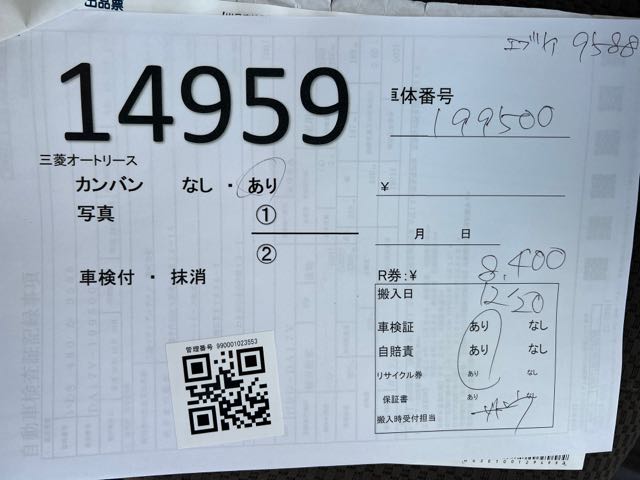 出品票
エブリイ 9588
14959
車体番号
199500
三菱オートリース
カンバン なし ・ あり
¥
写真 ①
②
月 日
車検付 ・ 抹消
R券:¥ 8,400
搬入日 12/20
車検証 あり なし
自賠責 あり なし
リサイクル券 あり なし
保証書 あり
搬入時受付担当
管理番号 990001023553